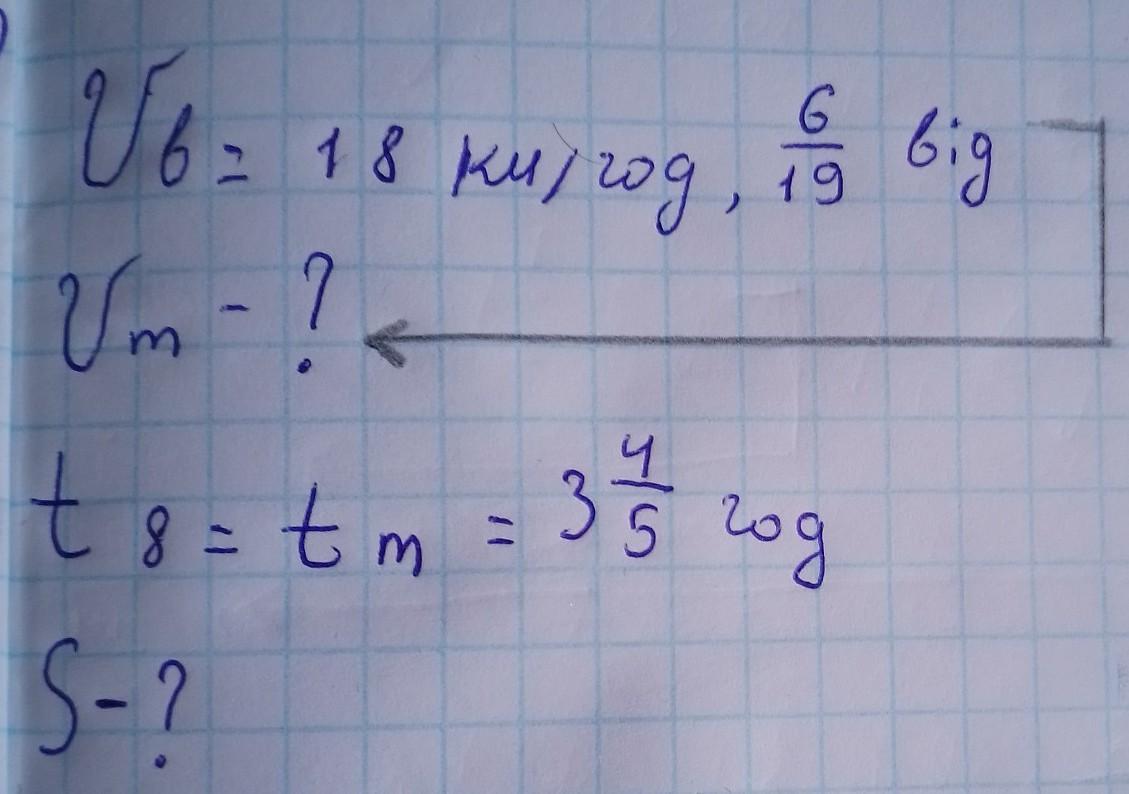 Vв = 18 км/год, 6/19 від
Vm - ?
t в = t m = 3 4/5 год
S - ?